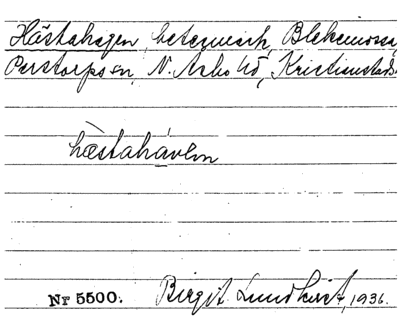 Hästahagen, betesmark, Blekemossa,
Perstorps sn, N. Åsbo hd, Kristianstads l.
hæ̀stahávən
Nr 5500. Birgit Lundkvist, 1936.